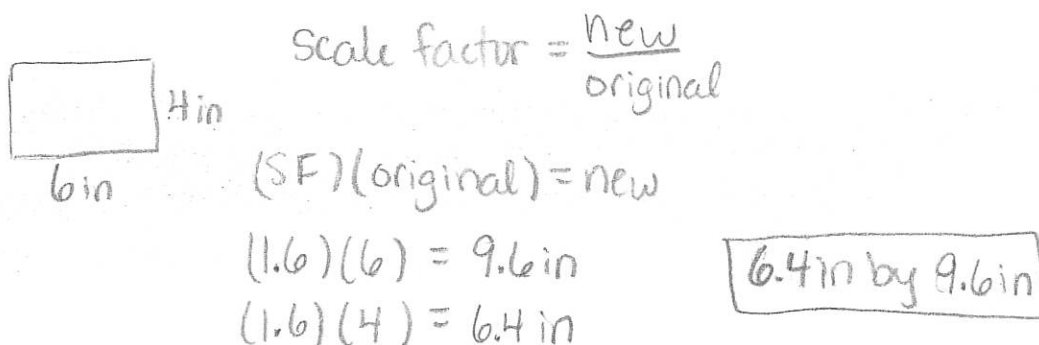 Scale factor = new
original
4in
6in
(SF)(original) = new
(1.6)(6) = 9.6in
(1.6)(4) = 6.4 in
6.4in by 9.6in